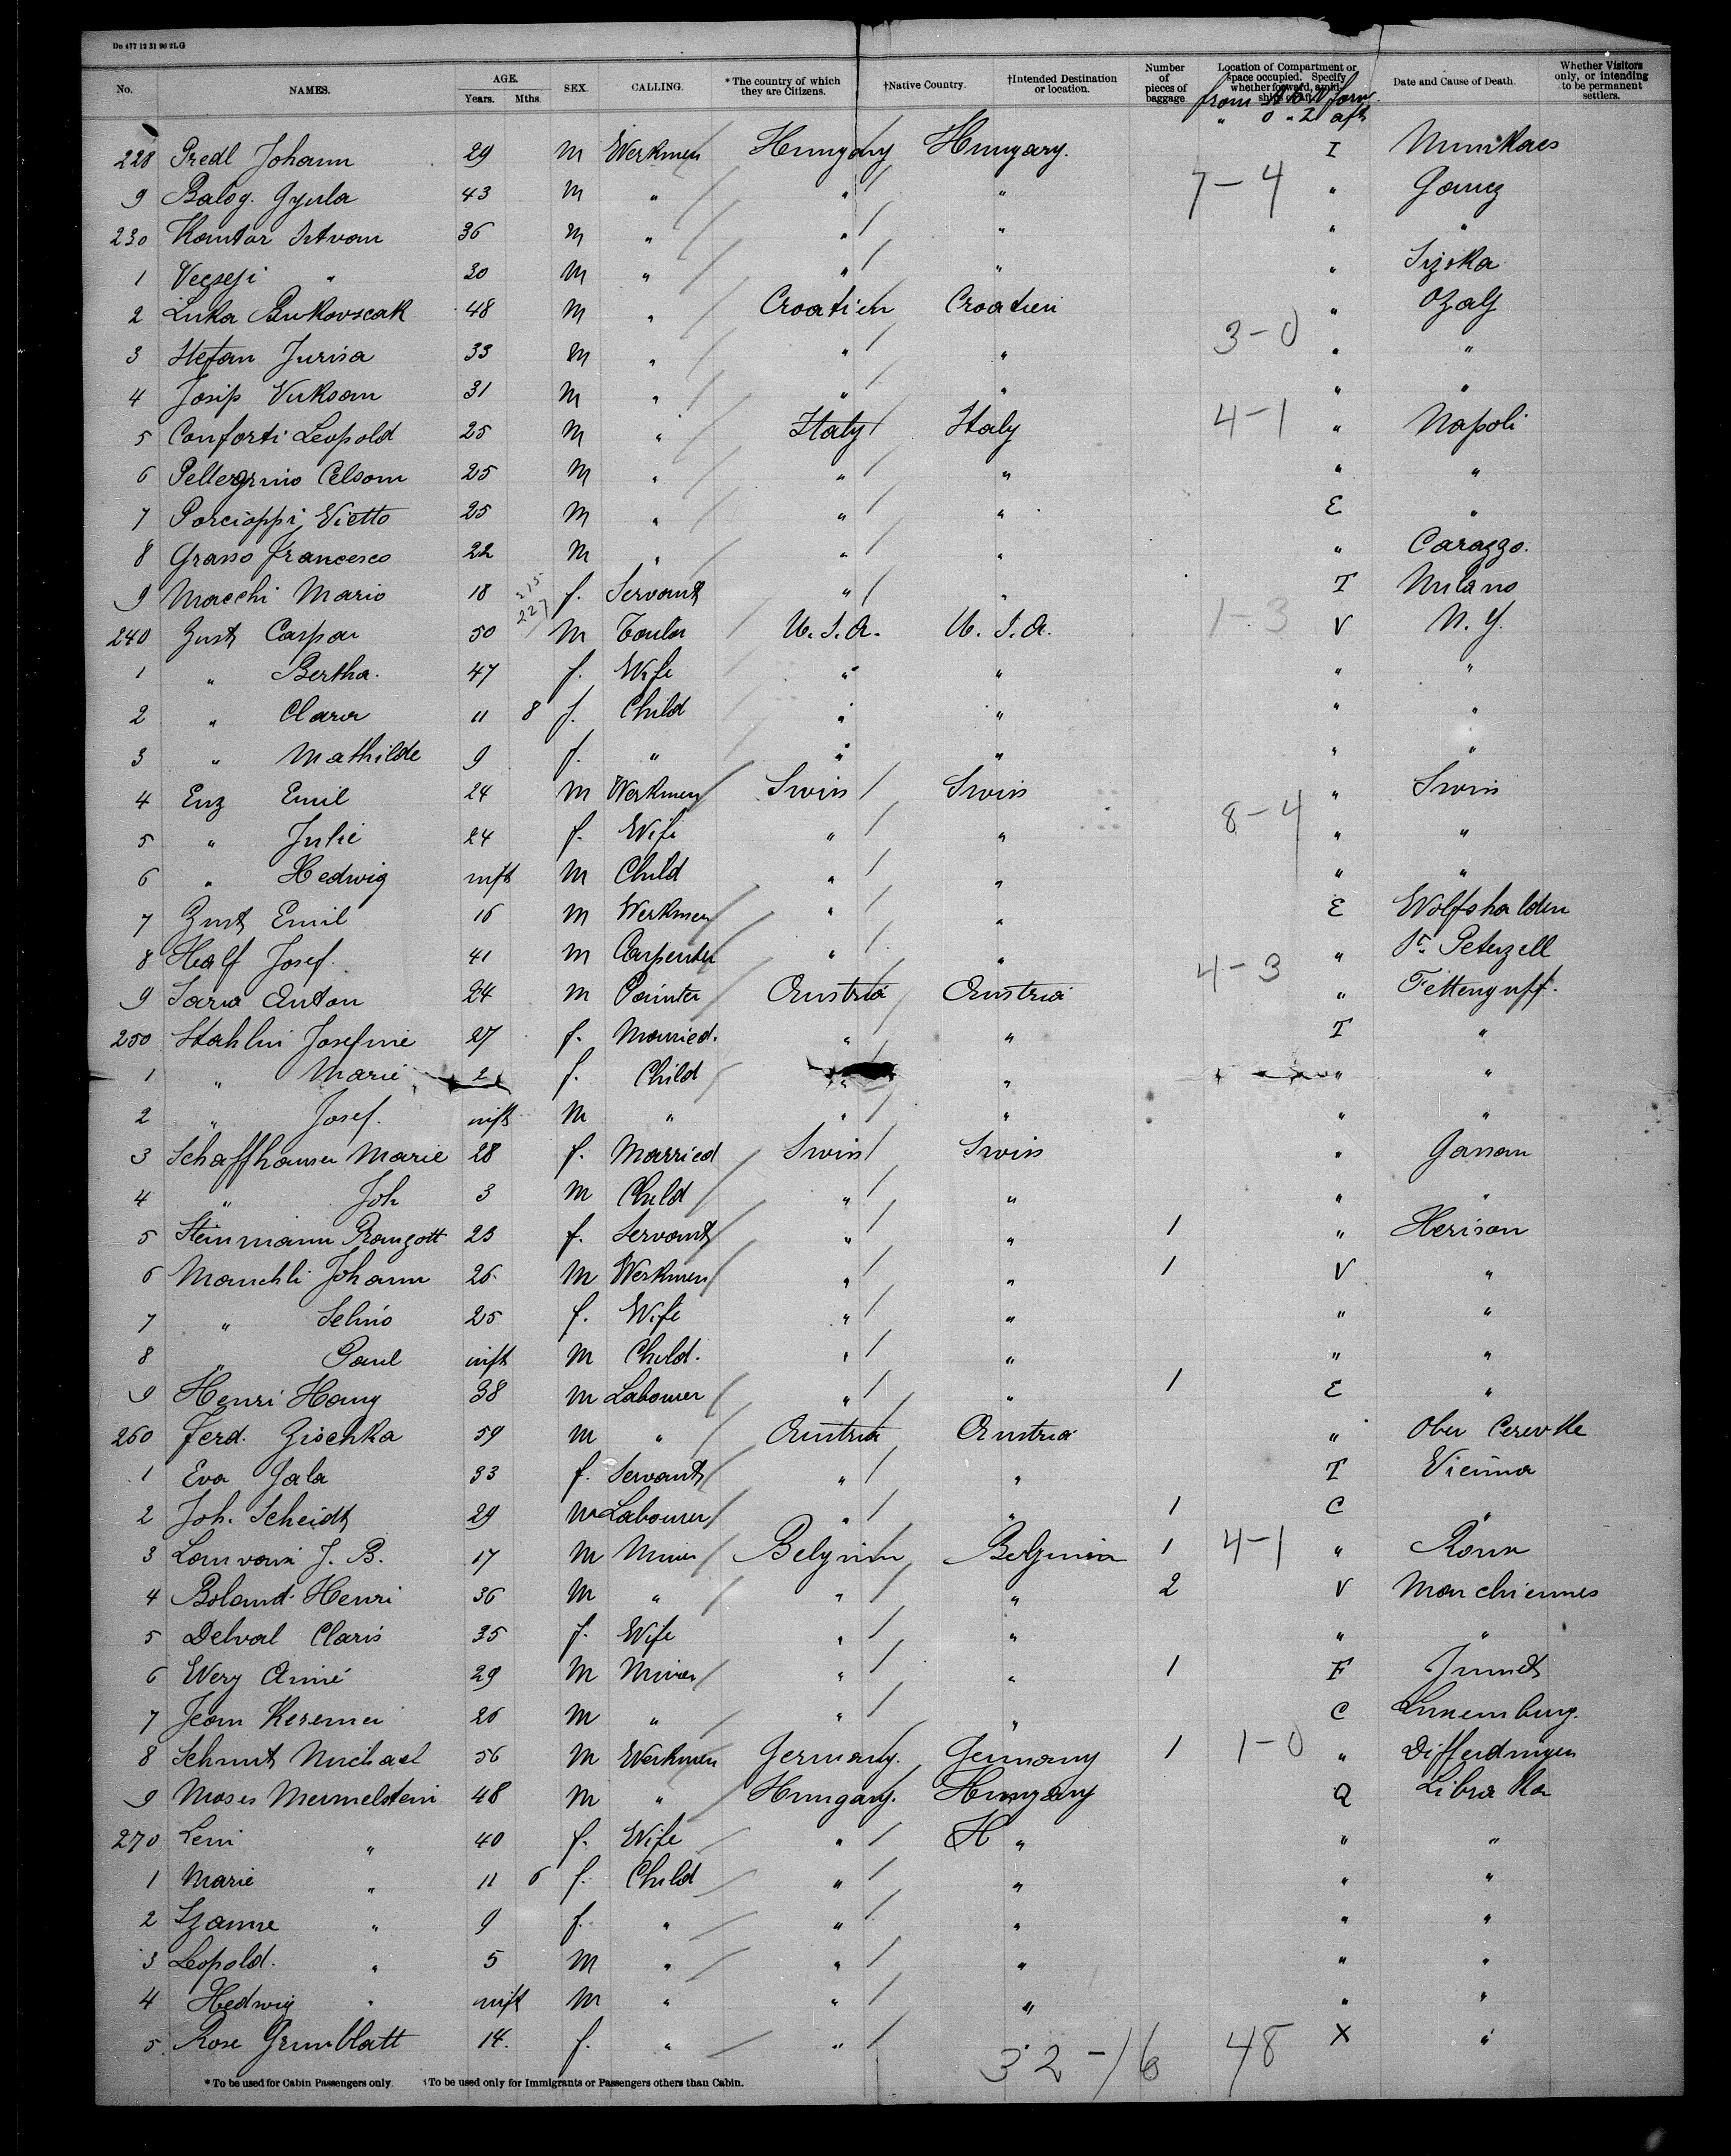 De 477 12 31 96 2LG
No. NAMES. AGE. Years. Mths. SEX. CALLING. *The country of which they are Citizens. †Native Country. †Intended Destination or location. Number of pieces of baggage Location of Compartment or space occupied. Specify whether forward, amidships or aft. Date and Cause of Death. Whether Visitors only, or intending to be permanent settlers.
from A to N forw.
" O " Z aft
228 Predl Johann 29 M Werkmen Hungary Hungary. I Munkacs
9 Balog. Gyula 43 M " " " 7-4 " Goncz
230 Kantor Istvan 36 M " " " " "
1 Vecseji " 30 M " " " " Sizska
2 Luka Bukovscak 48 M " Croatien Croatien " Ozalj
3 Stefan Jurisa 33 M " " " 3-0 " "
4 Josip Vuksan 31 M " " " " "
5 Conforti Leopold 25 M " Italy Italy 4-1 " Napoli
6 Pellegrino Celsom 25 M " " " " "
7 Porcioppi Vietto 25 M " " " E "
8 Grasso francesco 22 M " " " " Carazzo.
9 Macchi Mario 18 f. Servant " " T Milano
215
227
240 Zust Caspar 50 M U. S. A. U. S. A. 1-3 V N. Y.
1 " Bertha. 47 f. Wife " " " "
2 " Clara 11 8 f. Child " " " "
3 " Mathilde 9 f. " " " " "
4 Enz Emil 24 M Werkmen Swiss Swiss " Swiss
5 " Julie 24 f. Wife " " 8-4 " "
6 " Hedwig inft M Child " " " "
7 Zust Emil 16 M Werkmen " " E Wolfshalden
8 Half Josef. 41 M Carpenter " " " St. Peterzell
9 Saria Anton 24 M Painter Austria Austria 4-3 " Fettengupf.
250 Stahlin Josefine 27 f. Married. " " T "
1 " Marie 2 f. Child " " " "
2 " Josef. inft M " " " " "
3 Schaffhauser Marie 28 f. Married Swiss Swiss " Gossau
4 " Joh 3 M Child " " " "
5 Steinmann Prangott 23 f. Servant " " 1 " Herisau
6 Manchli Johann 26 M Werkmen " " 1 V "
7 " Selino 25 f. Wife " " " "
8 " Paul inft M Child. " " " "
9 Henri Hany 38 M Labourer " " 1 E "
260 Ferd. Zischka 59 M " Austria Austria " Ober Cerevke
1 Eva Gala 33 f. Servant " " T Vienna
2 Joh. Scheidt 29 M Labourer " " 1 C "
3 J. B. 17 M Miner Belgium Belgium 1 4-1 "
4 Boland Henri 36 M " " " 2 V Monchiennes
5 Delval Claris 35 f. Wife " " " "
6 Wery Aimé 29 M Miner " " 1 F Jumet
7 Jean Keremer 26 M " " " C Luxemburg.
8 Schmit Michael 56 M Werkmen Germany. Germany 1 1-0 " Differdingen
9 Moses Mermelstein 48 M " Hungary. Hungary Q Libuska
270 Leni " 40 f. Wife " H " " "
1 Marie " 11 6 f. Child " " " "
2 Szanne " 9 f. " " " " "
3 Leopold. " 5 M " " " " "
4 Hedwig " inft M " " " " "
5 Rose Grunblatt 14. f. " " " X "
32-16 48
* To be used for Cabin Passengers only. †To be used only for Immigrants or Passengers others than Cabin.